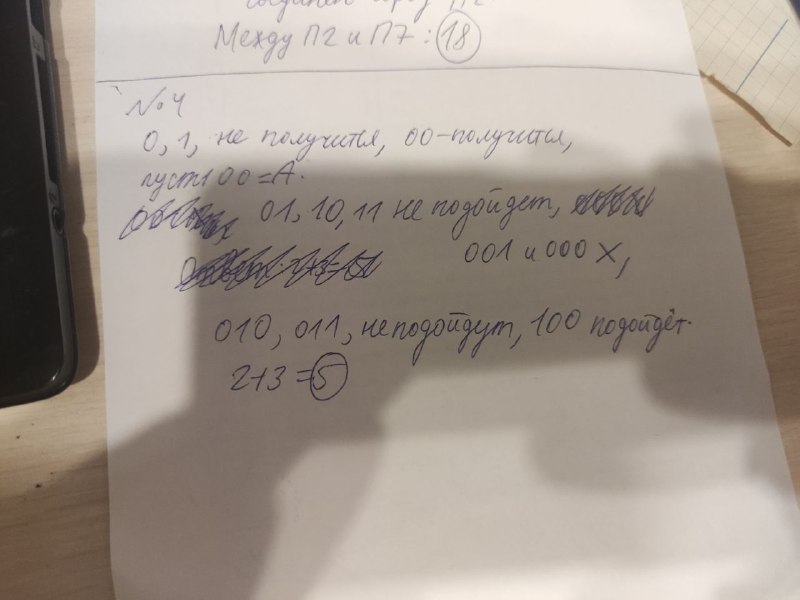 Между П2 и П7: 18
№4
0, 1, не получится, 00-получится,
пусть 00=А.
01, 10, 11 не подойдет,
001 и 000 X,
010, 011, не подойдут, 100 подойдёт.
2+3=5